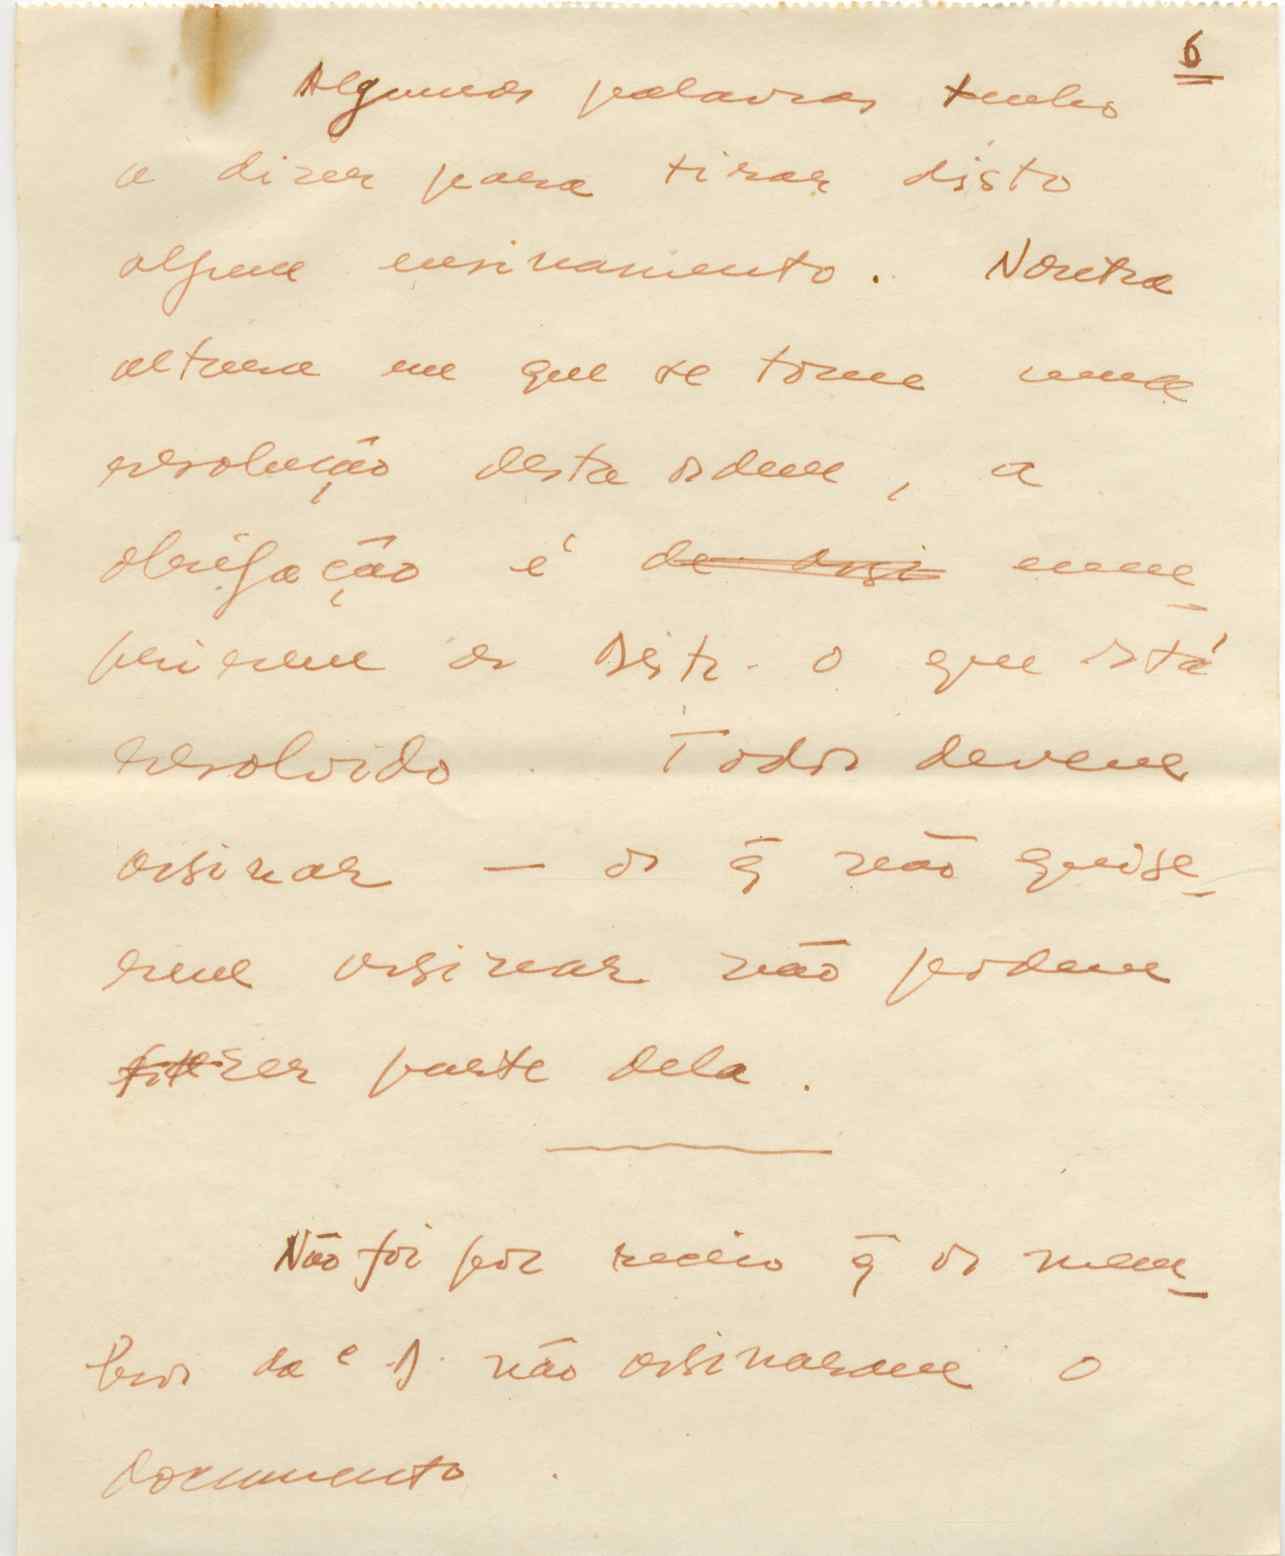 6
Algumas palavras tenho
a dizer para tirar disto
algum ensinamento. Noutra
altura em que se tome uma
resolução desta ordem, a
obrigação é de assi cum_
prirem as Distr. o que está
resolvido. Todos devem
assinar — os q̃ não quise_
rem assinar não podem
fazer parte dela.
Não foi por receio q̃ os mem_
bros da C D. não assinaram o
documento.